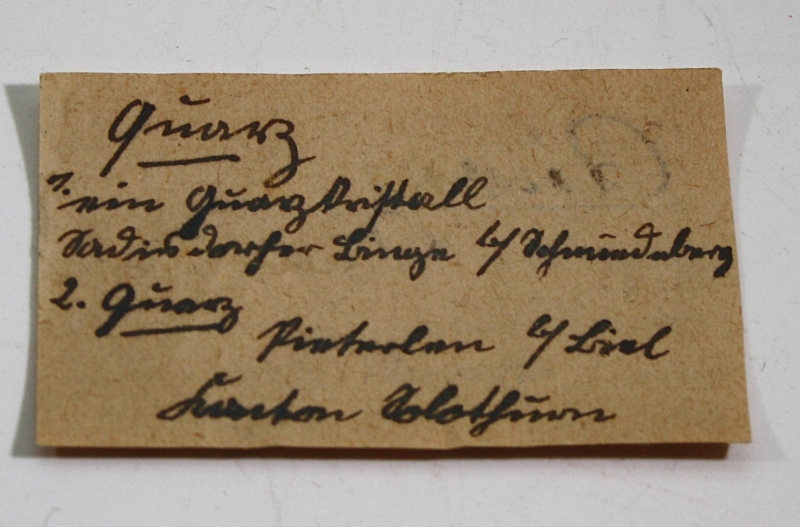 Quarz
1. ein Quarzkristall
Sadisdorfer Binge b/ Schmiedeberg
2. Quarz
Pieterlen b/ Biel
Kanton Solothurn